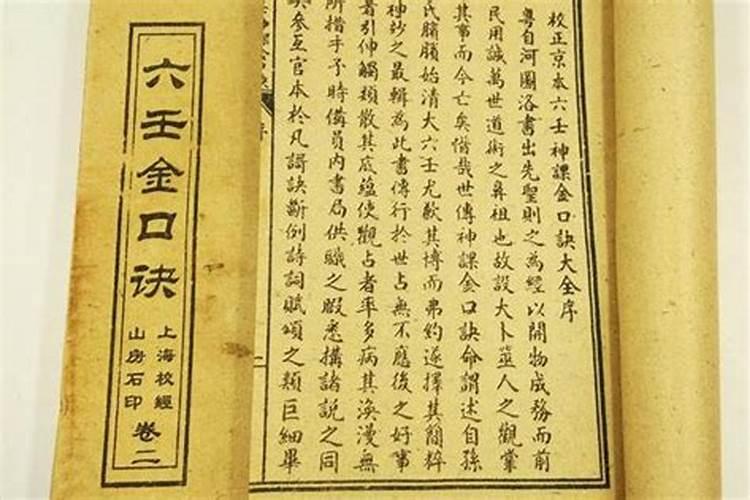 校正京本六壬神課金口訣大全序
粤自河圖洛書出先聖則之為經以開物成務而前
民用誠萬世道術之鼻祖也故設大卜筮人之觀掌
其事而今亡矣惜哉世傳神課金口訣命謂述自孫
氏臏臏始清大六壬尤歉其博而弗約遂擇其簡粹
神妙之最輯為此書傳行於世占無不應後之好事
者引伸觸類散其底蘊使觀占者率多病其渙漫無
所措手予時備員內書局供職之暇悉搆諸說之同
參互官本於凡謌訣斷例詩詞賦頌之類巨細畢
六壬金口诀
上海校經
山房石印
卷二